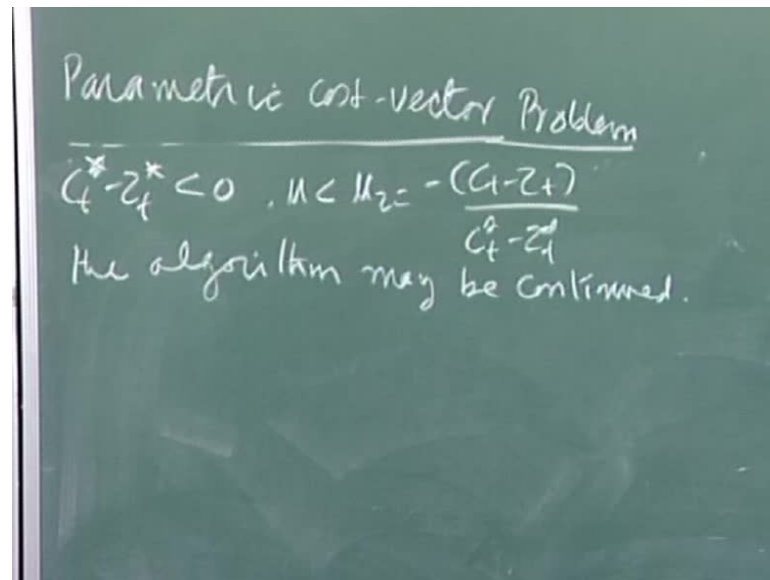 Parametric cost-vector Problem
C_t^* - Z_t^* < 0 , μ < μ_2 = -(C_t - Z_t) / C_t^* - Z_t^*
the algorithm may be continued.